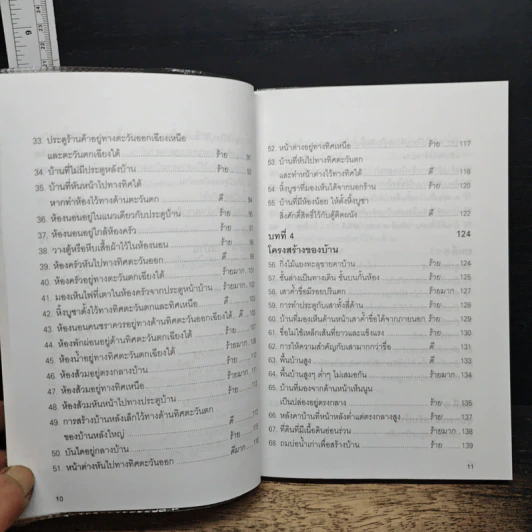 6
33. ประตูร้านค้าอยู่ทางตะวันออกเฉียงเหนือ
และตะวันตกเฉียงใต้ ร้าย
34. บ้านที่ไม่มีประตูหลังบ้าน ร้าย
35. บ้านที่หันหน้าไปทางทิศใต้
หากทำห้องไว้ทางด้านตะวันตก ดี
36. ห้องนอนอยู่ในแนวเดียวกับประตูบ้าน ร้าย
37. ห้องนอนอยู่ใกล้ห้องครัว ร้าย
38. วางตู้หรือหีบเสื้อผ้าไว้ในห้องนอน ร้าย
39. ห้องครัวหันไปทางทิศตะวันตก ร้าย
40. ห้องครัวอยู่ทางตะวันตกเฉียงใต้ ร้ายมาก
41. มองเห็นไฟที่เตาในห้องครัวจากประตูหน้าบ้าน ร้ายมาก
42. หิ้งบูชาตั้งไว้ทางทิศตะวันตกและทิศเหนือ ดี
43. ห้องนอนคนชราควรอยู่ทางด้านทิศตะวันตกเฉียงใต้ ดี
44. ห้องพักผ่อนอยู่ด้านทิศตะวันตกเฉียงใต้ ร้าย
45. ห้องน้ำอยู่ทางทิศตะวันตกเฉียงใต้ ร้าย
46. ห้องส้วมอยู่ตรงกลางบ้าน ร้าย
47. ห้องส้วมอยู่ทางทิศเหนือ ร้าย
48. ห้องส้วมหันหน้าไปทางประตูบ้าน ร้าย
49. การสร้างบ้านหลังเล็กไว้ทางด้านทิศตะวันตก
ของบ้านหลังใหญ่ ดี
50. บันไดอยู่กลางบ้าน ร้าย
51. หน้าต่างหันไปทางทิศตะวันออก ดีมาก
10
52. หน้าต่างอยู่ทางทิศเหนือ ร้าย 117
53. บ้านที่หันไปทางทิศตะวันตก
และทำหน้าต่างไว้ทางทิศใต้ ดี 118
54. หิ้งบูชาที่มองเห็นได้จากนอกร้าน ร้าย 120
55. บ้านที่มีห้องน้อย ให้ตั้งหิ้งบูชา
สิ่งศักดิ์สิทธิ์ไว้กับตู้ติดผนัง ดี 122
บทที่ 4 124
โครงสร้างของบ้าน
56. กิ่งไม้แยงทะลุชายคาบ้าน ร้าย 124
57. ชั้นล่างเป็นทางเดิน ชั้นบนกั้นห้อง ร้าย
58. เสาค้ำชื่อมีรอยปริแตก ร้ายมาก 127
59. การทำประตูกับเสาทั้งสี่ด้าน ร้าย 128
60. บ้านที่มองเห็นด้านหน้าเสาค้ำชื่อได้จากภายนอก ร้าย
61. ชื่อไม่ใช้เหล็กเส้นที่ยาวและแข็งแรง ร้าย 131
62. การให้ความสำคัญกับเสามากกว่าชื่อ ร้าย
63. พื้นบ้านสูง ดี 133
64. พื้นบ้านสูงๆ ต่ำๆ ไม่เสมอกัน ร้ายมาก 134
65. บ้านที่มองจากด้านหน้าเห็นนูน
เป็นปล่องอยู่ตรงกลาง ร้าย 135
66. หลังคาบ้านที่หน้าหลังต่ำแต่ตรงกลางสูง ร้าย 137
67. ที่ดินที่มีเนื้อดินอ่อนร่วน ร้ายมาก 138
68. ถมบ่อน้ำเก่าเพื่อสร้างบ้าน ร้าย 139
11